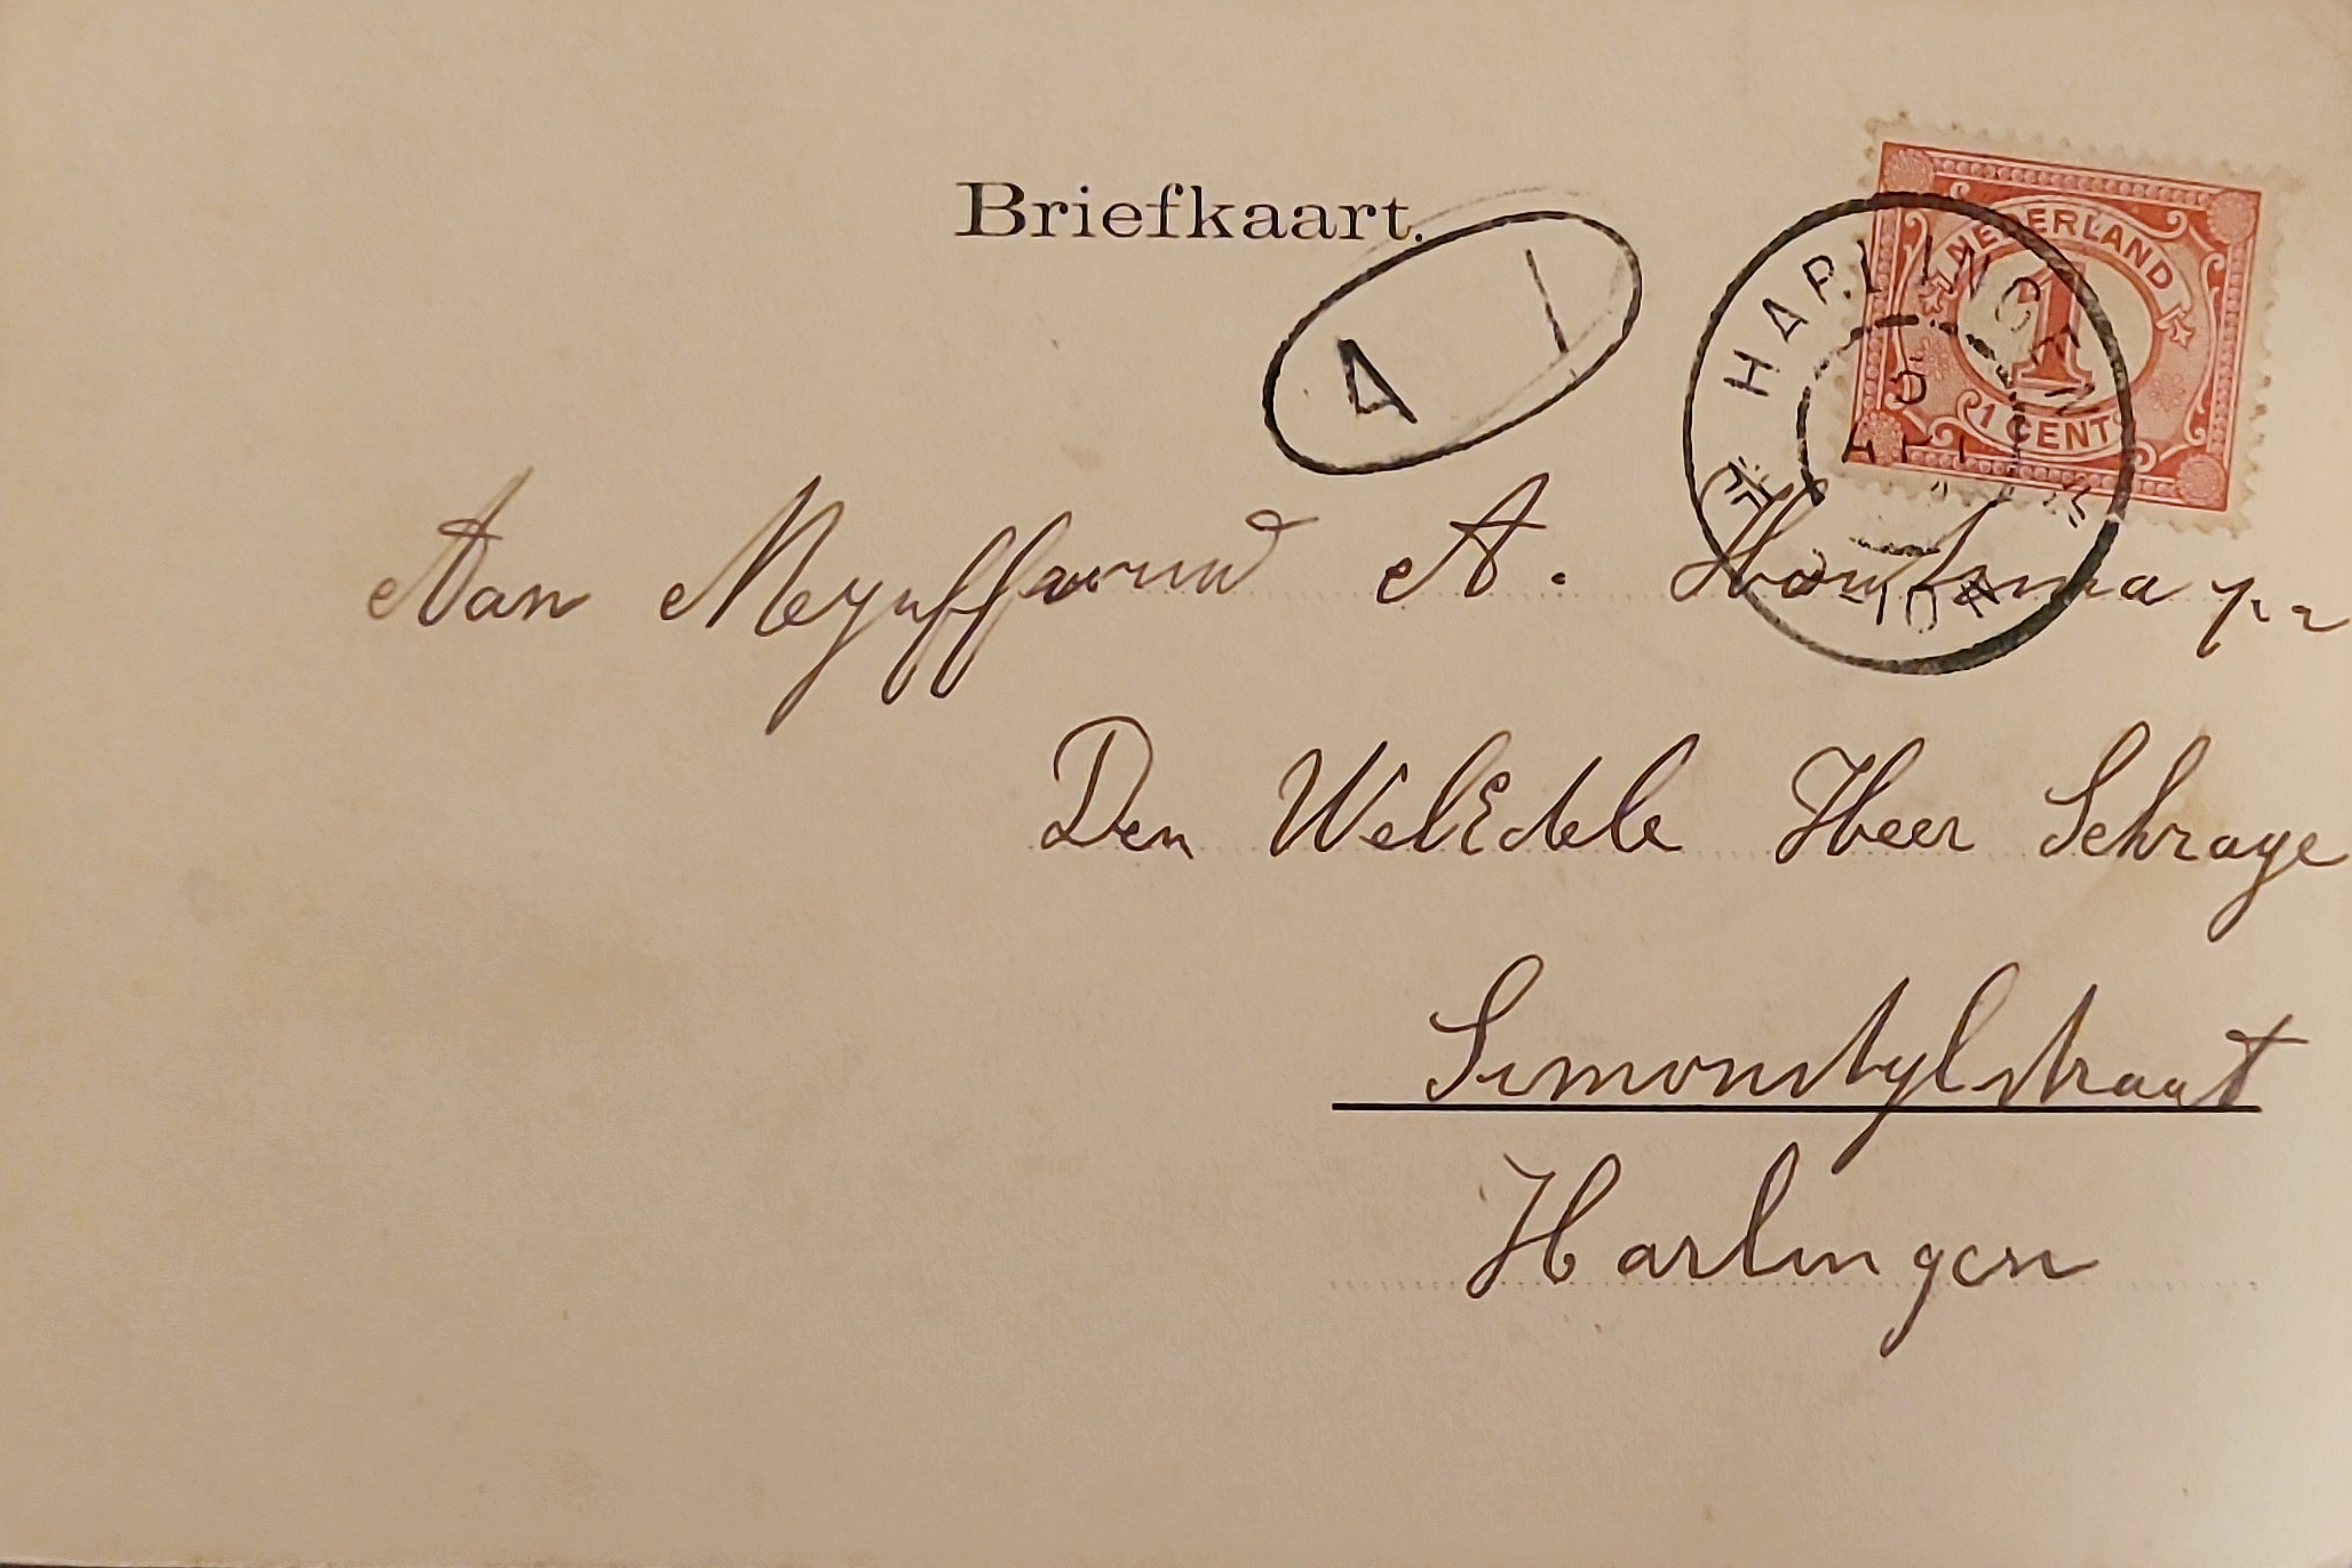 Briefkaart.
NEDERLAND
1
1 CENT
HARLINGEN
5
4
Aan Mejuffrouw A. Houtsma p.a
Den WelEdele Heer Schrage
Simonstylstraat
Harlingen